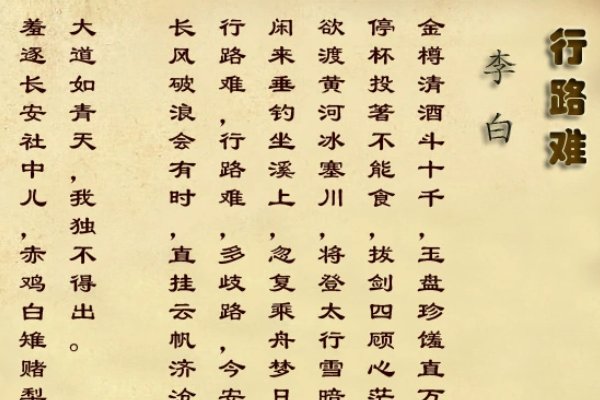 行路难
李白
金樽清酒斗十千,玉盘珍馐直万
停杯投著不能食,拔剑四顾心茫
欲渡黄河冰塞川,将登太行雪暗
闲来垂钓坐溪上,忽复乘舟梦日
行路难,行路难,多歧路,今安
长风破浪会有时,直挂云帆济沧
大道如青天,我独不得出。
羞逐长安社中儿,赤鸡白雉赌梨